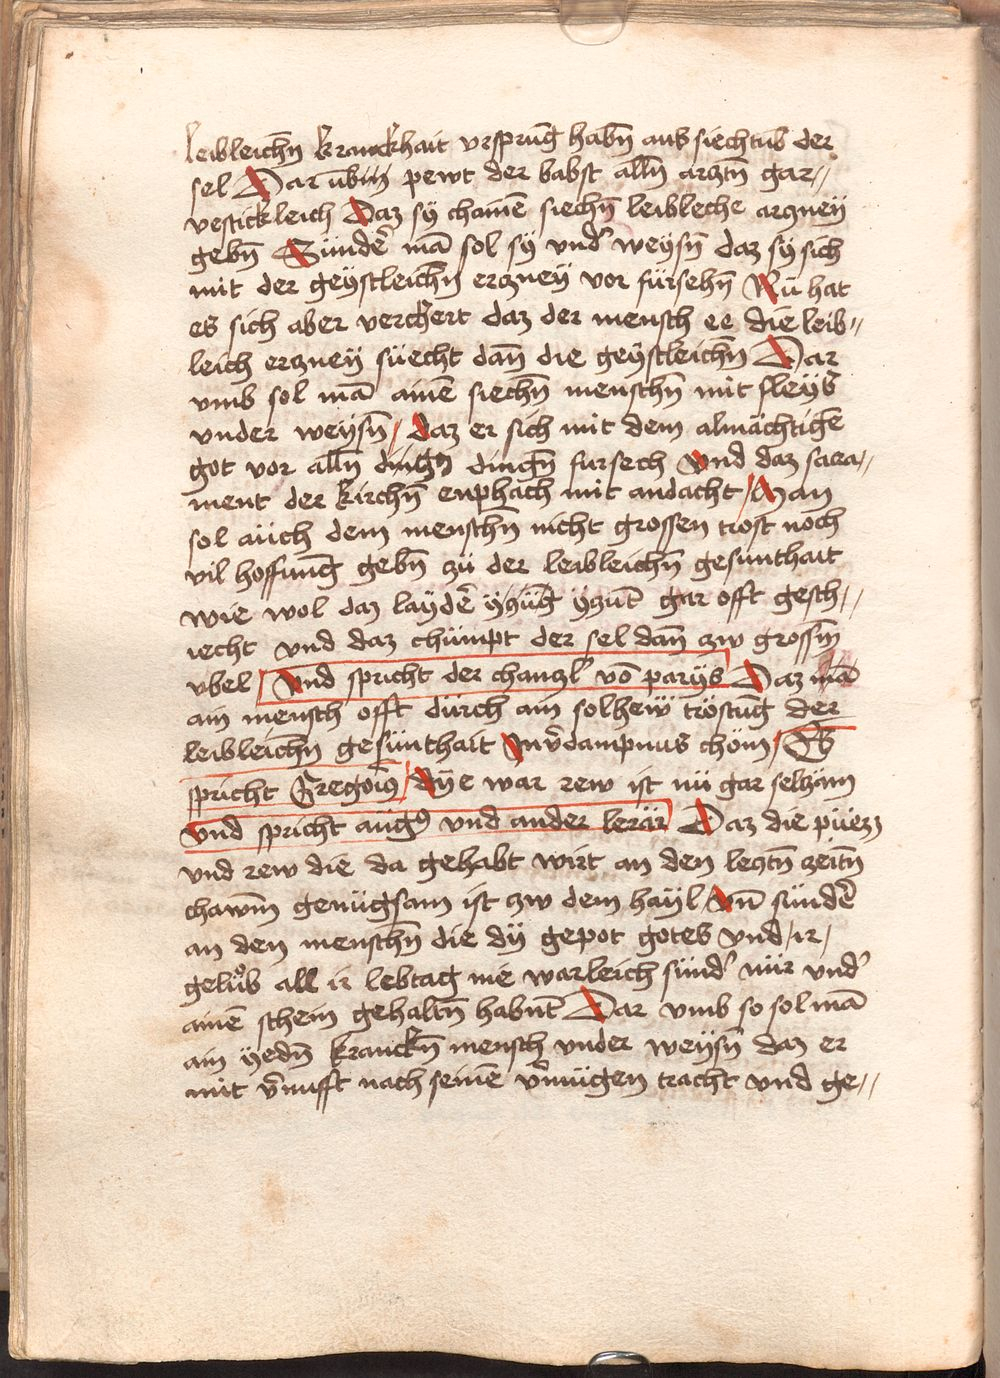 leibleichn̄ kranckhait vrsprūg habn̄ aus siechtūb der
sel Dar ūbm̄ pewt der babst alln̄ arcztn̄ gar //
vestickleich Daz sÿ chainē siechn̄ leibleche arczneÿ
gebn̄ Sünderͤ mā sol sÿ vnd' weÿsn̄ daz sÿ sich
mit der geÿstleichn̄ erczneÿ vor fürsehn̄ Nū hat
es sich aber verchert daz der mensch ee die leib //
leich erczneÿ süecht dan̄ die geÿstleichn̄ Dar
vmb sol mā ainē siechn̄ menschn̄ mit fleÿs
vnder weÿsn̄ / daz er sich mit dem almächtigē
got vor alln̄ dingn̄ dingn̄ fursech vnd daz sacra //
ment der kirchn̄ enphach mit andacht / Man
sol aüch dem menschn̄ nicht grossen trost noch
vil hoffnūg gebn̄ zü der leibleichn̄ gesunthait
wie wol daz laÿdē ÿczūg ÿczūt gar offt gesch //
iecht vnd daz chümpt der sel dan̄ zw grossm̄
vbel vnd spricht der chanczl' vō parÿs Daz mā
ain mensch offt dürch ain solhew tröstūg der
leibleichn̄ gesünthait In v̄dampnus chöm / Es
spricht Gregoiꝰ / dÿe war rew ist nü gar selczäm
vnd spricht aügꝰ vnd ander lerär Daz die püezz
vnd rew die da gehabt wirt an den leczttn̄ zeitn̄
chawm̄ genügsam ist zw dem haÿl / vn̄ sünderͤ
an den menschn̄ die dÿ gepot gotes vnd / ir /
gelüb all ir lebtag nie warleich sünd' nür vnd'
ainē schein gehaltn̄ habnt Dar vmb so sol mā
ain ÿedn̄ kranckn̄ mensch vnder weÿsn̄ daz er
mit v̄nufft nach seinē v̄mügen tracht vnd ge //